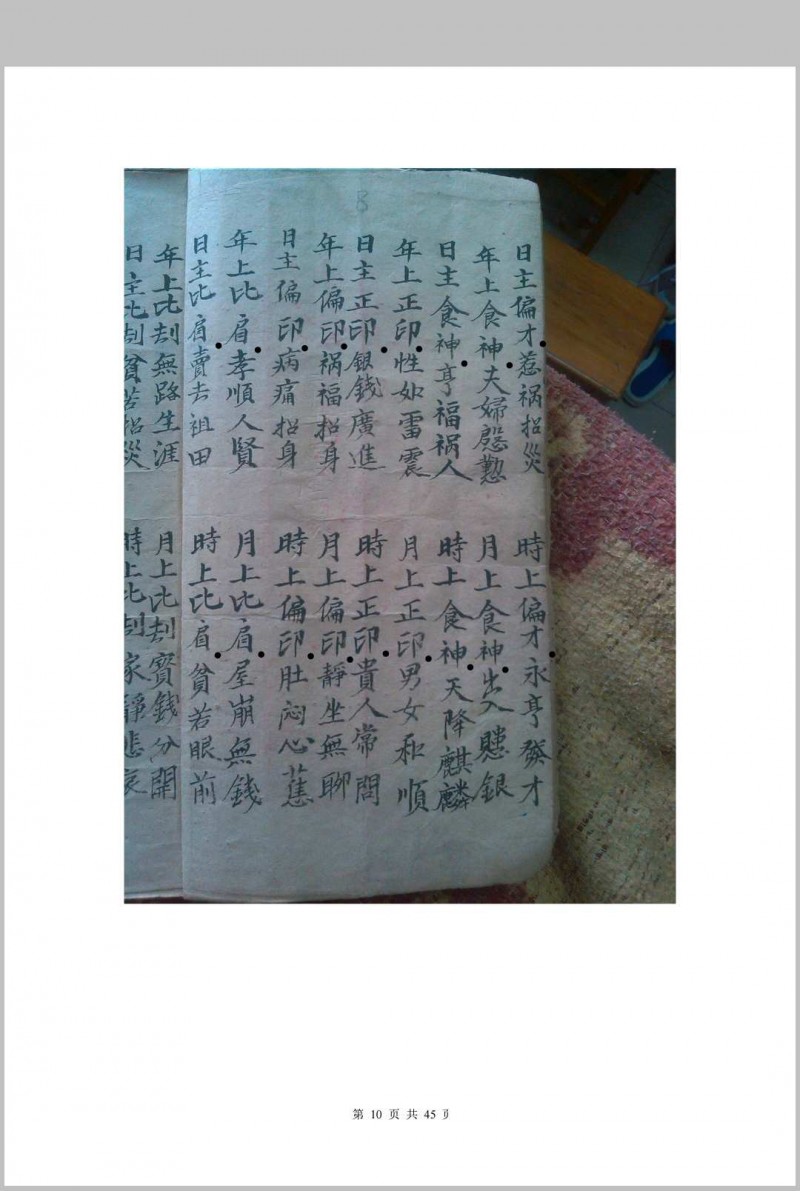 日主偏才惹祸招災
時上偏才永亨發才
年上食神夫婦慇懃
月上食神出入賹銀
日主食神亨福祸人
時上食神天降麒麟
年上正印性如雷震
月上正印男女和順
日主正印銀錢廣進
時上正印貴人常問
年上偏印祸福招身
月上偏印靜坐無聊
日主偏印病痛招身
時上偏印肚闷心蕉
年上比肩孝順人賢
月上比肩屋崩無錢
日主比肩賣去祖田
時上比肩貧若眼前
年上比刦無路生涯
月上比刦寳錢分開
日主比刦貧苦招災
時上比刦家靜悲哀
第 10 页 共 45